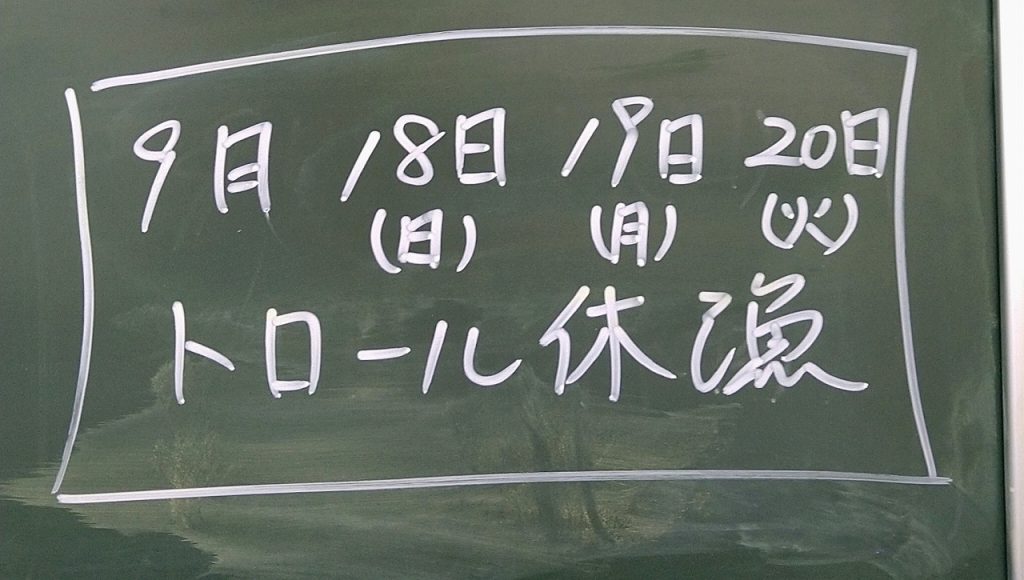 9月 18日 19日 20日
(日) (月) (火)
トロール休漁